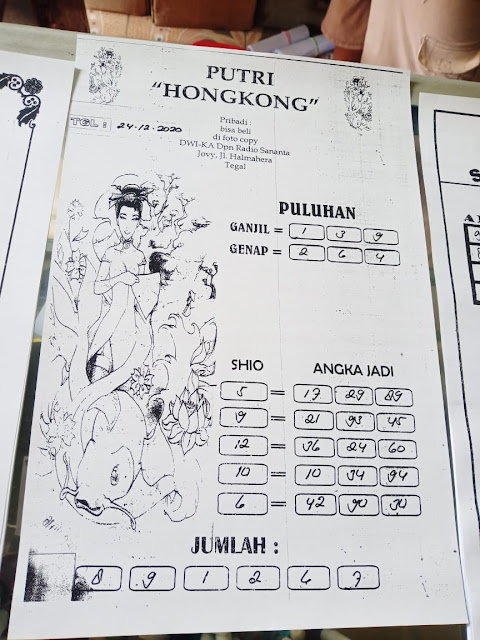 PUTRI
"HONGKONG"
TGL : 24-12-2020
Pribadi :
bisa beli
di foto copy
DWI-KA Dpn Radio Sanania
Jovy, Jl. Halmahera
Tegal
PULUHAN
GANJIL = 1 3 9
GENAP = 2 6 4
SHIO ANGKA JADI
5 = 17 29 89
9 = 21 93 45
12 = 36 24 60
10 = 10 34 94
6 = 42 90 30
JUMLAH :
8 9 1 2 6 7